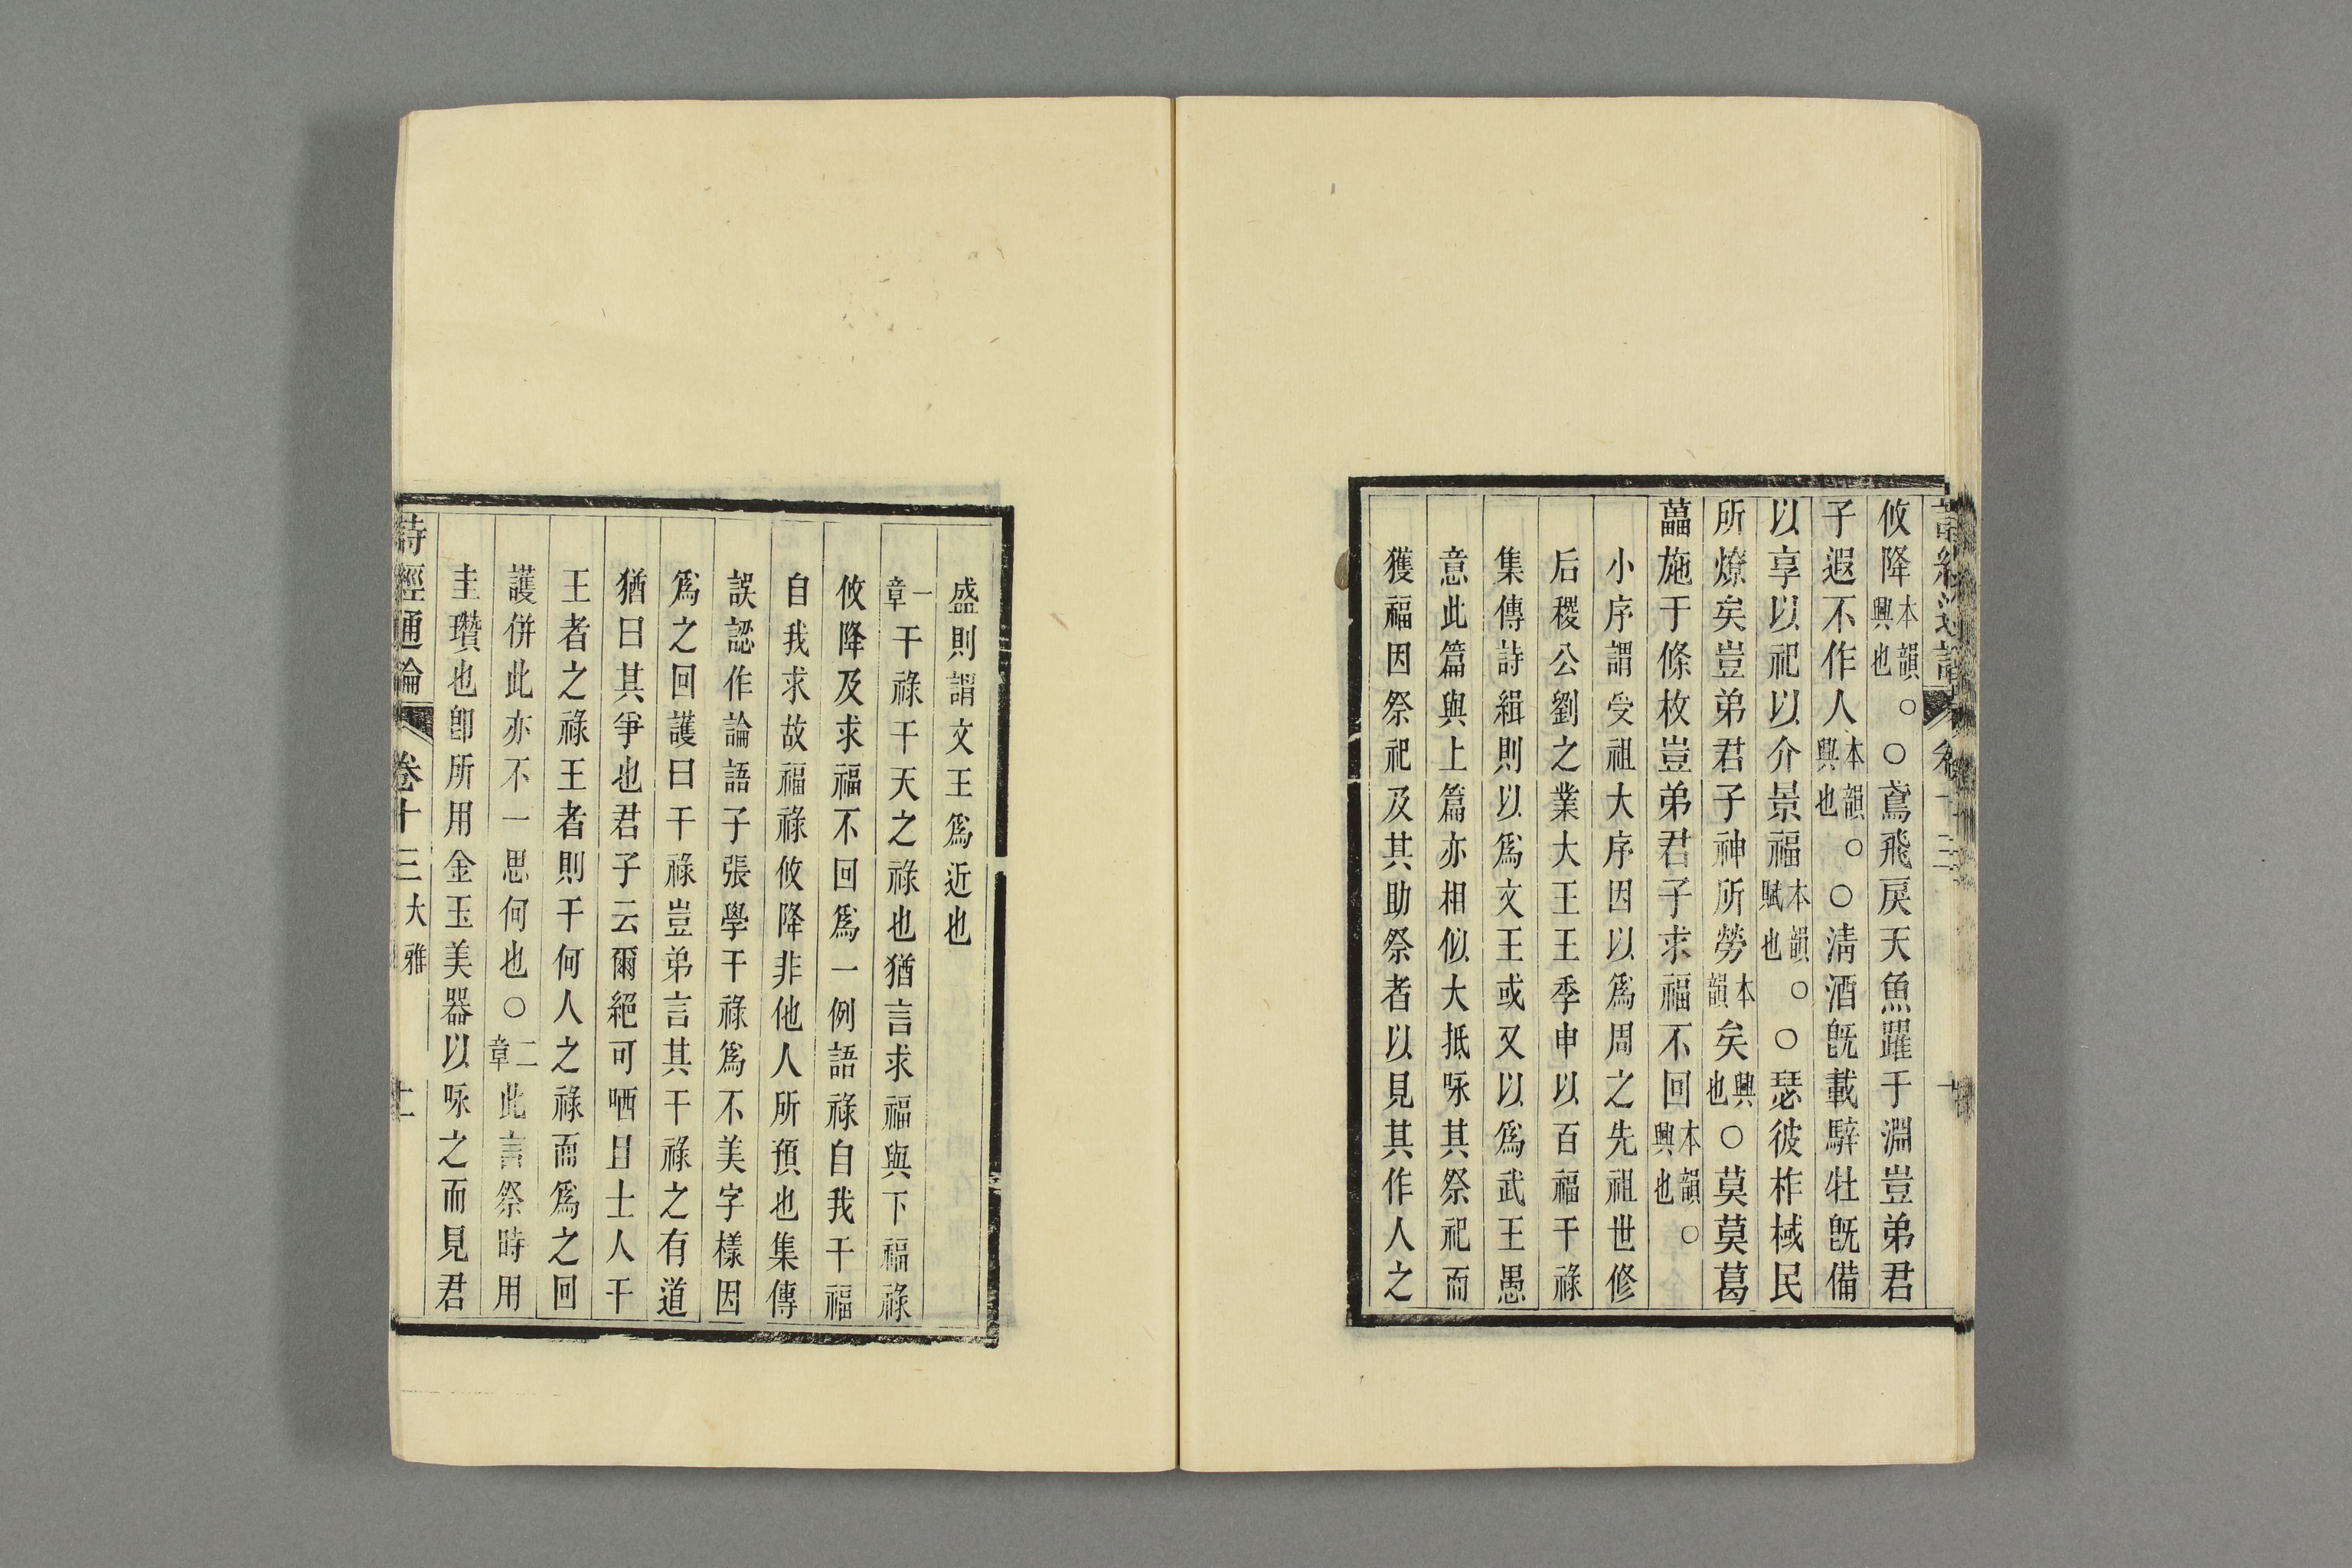 攸降本韻興也○○鳶飛戾天魚躍于淵豈弟君
子遐不作人本韻興也○○清酒旣載騂牡旣備
以享以祀以介景福本韻賦也○○瑟彼柞棫民
所燎矣豈弟君子神所勞本韻矣興也○莫莫葛
藟施于條枚豈弟君子求福不回本韻興也○
小序謂受祖大序因以爲周之先祖世修
后稷公劉之業大王王季申以百福干祿
集傳詩緝則以爲文王或又以爲武王愚
意此篇與上篇亦相似大抵咏其祭祀而
獲福因祭祀及其助祭者以見其作人之
盛則謂文王爲近也
一章干祿干天之祿也猶言求福與下福祿
攸降及求福不回爲一例語祿自我干福
自我求故福祿攸降非他人所預也集傳
誤認作論語子張學干祿爲不美字樣因
爲之回護曰干祿豈弟言其干祿之有道
猶曰其爭也君子云爾絕可哂且士人干
王者之祿王者則干何人之祿而爲之回
護併此亦不一思何也○二章此言祭時用
圭瓚也卽所用金玉美器以咏之而見君
詩經通論 卷十三 大雅